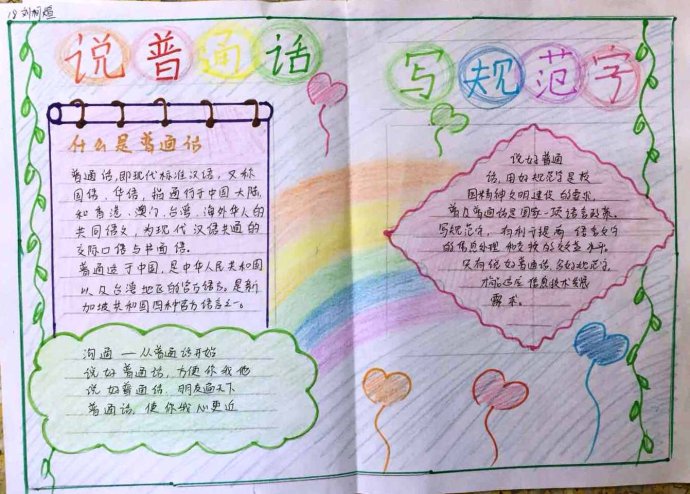 18 刘柯煊
说普通话
写规范字
什么是普通话
普通话,即现代标准汉语,又称
国语、华语,指通行于中国大陆
和香港、澳门、台湾,海外华人的
共同语文,为现代汉语共通的
交际口语与书面语。
普通话于中国,是中华人民共和国
以及台湾地区的官方语言。是新
加坡共和国四种官方语言之一。
沟通—从普通话开始
说好普通话,方便你我他
说好普通话,朋友遍天下
普通话,使你我心更近
说好普通
话,用好规范字是校
园精神文明建设的要求,
普及普通话是国家一项语言政策。
写规范字,有利于提高语言文字
的信息处理和交换的效益水平。
只有说好普通话、写好规范字,
才能适应信息技术发展
需求。